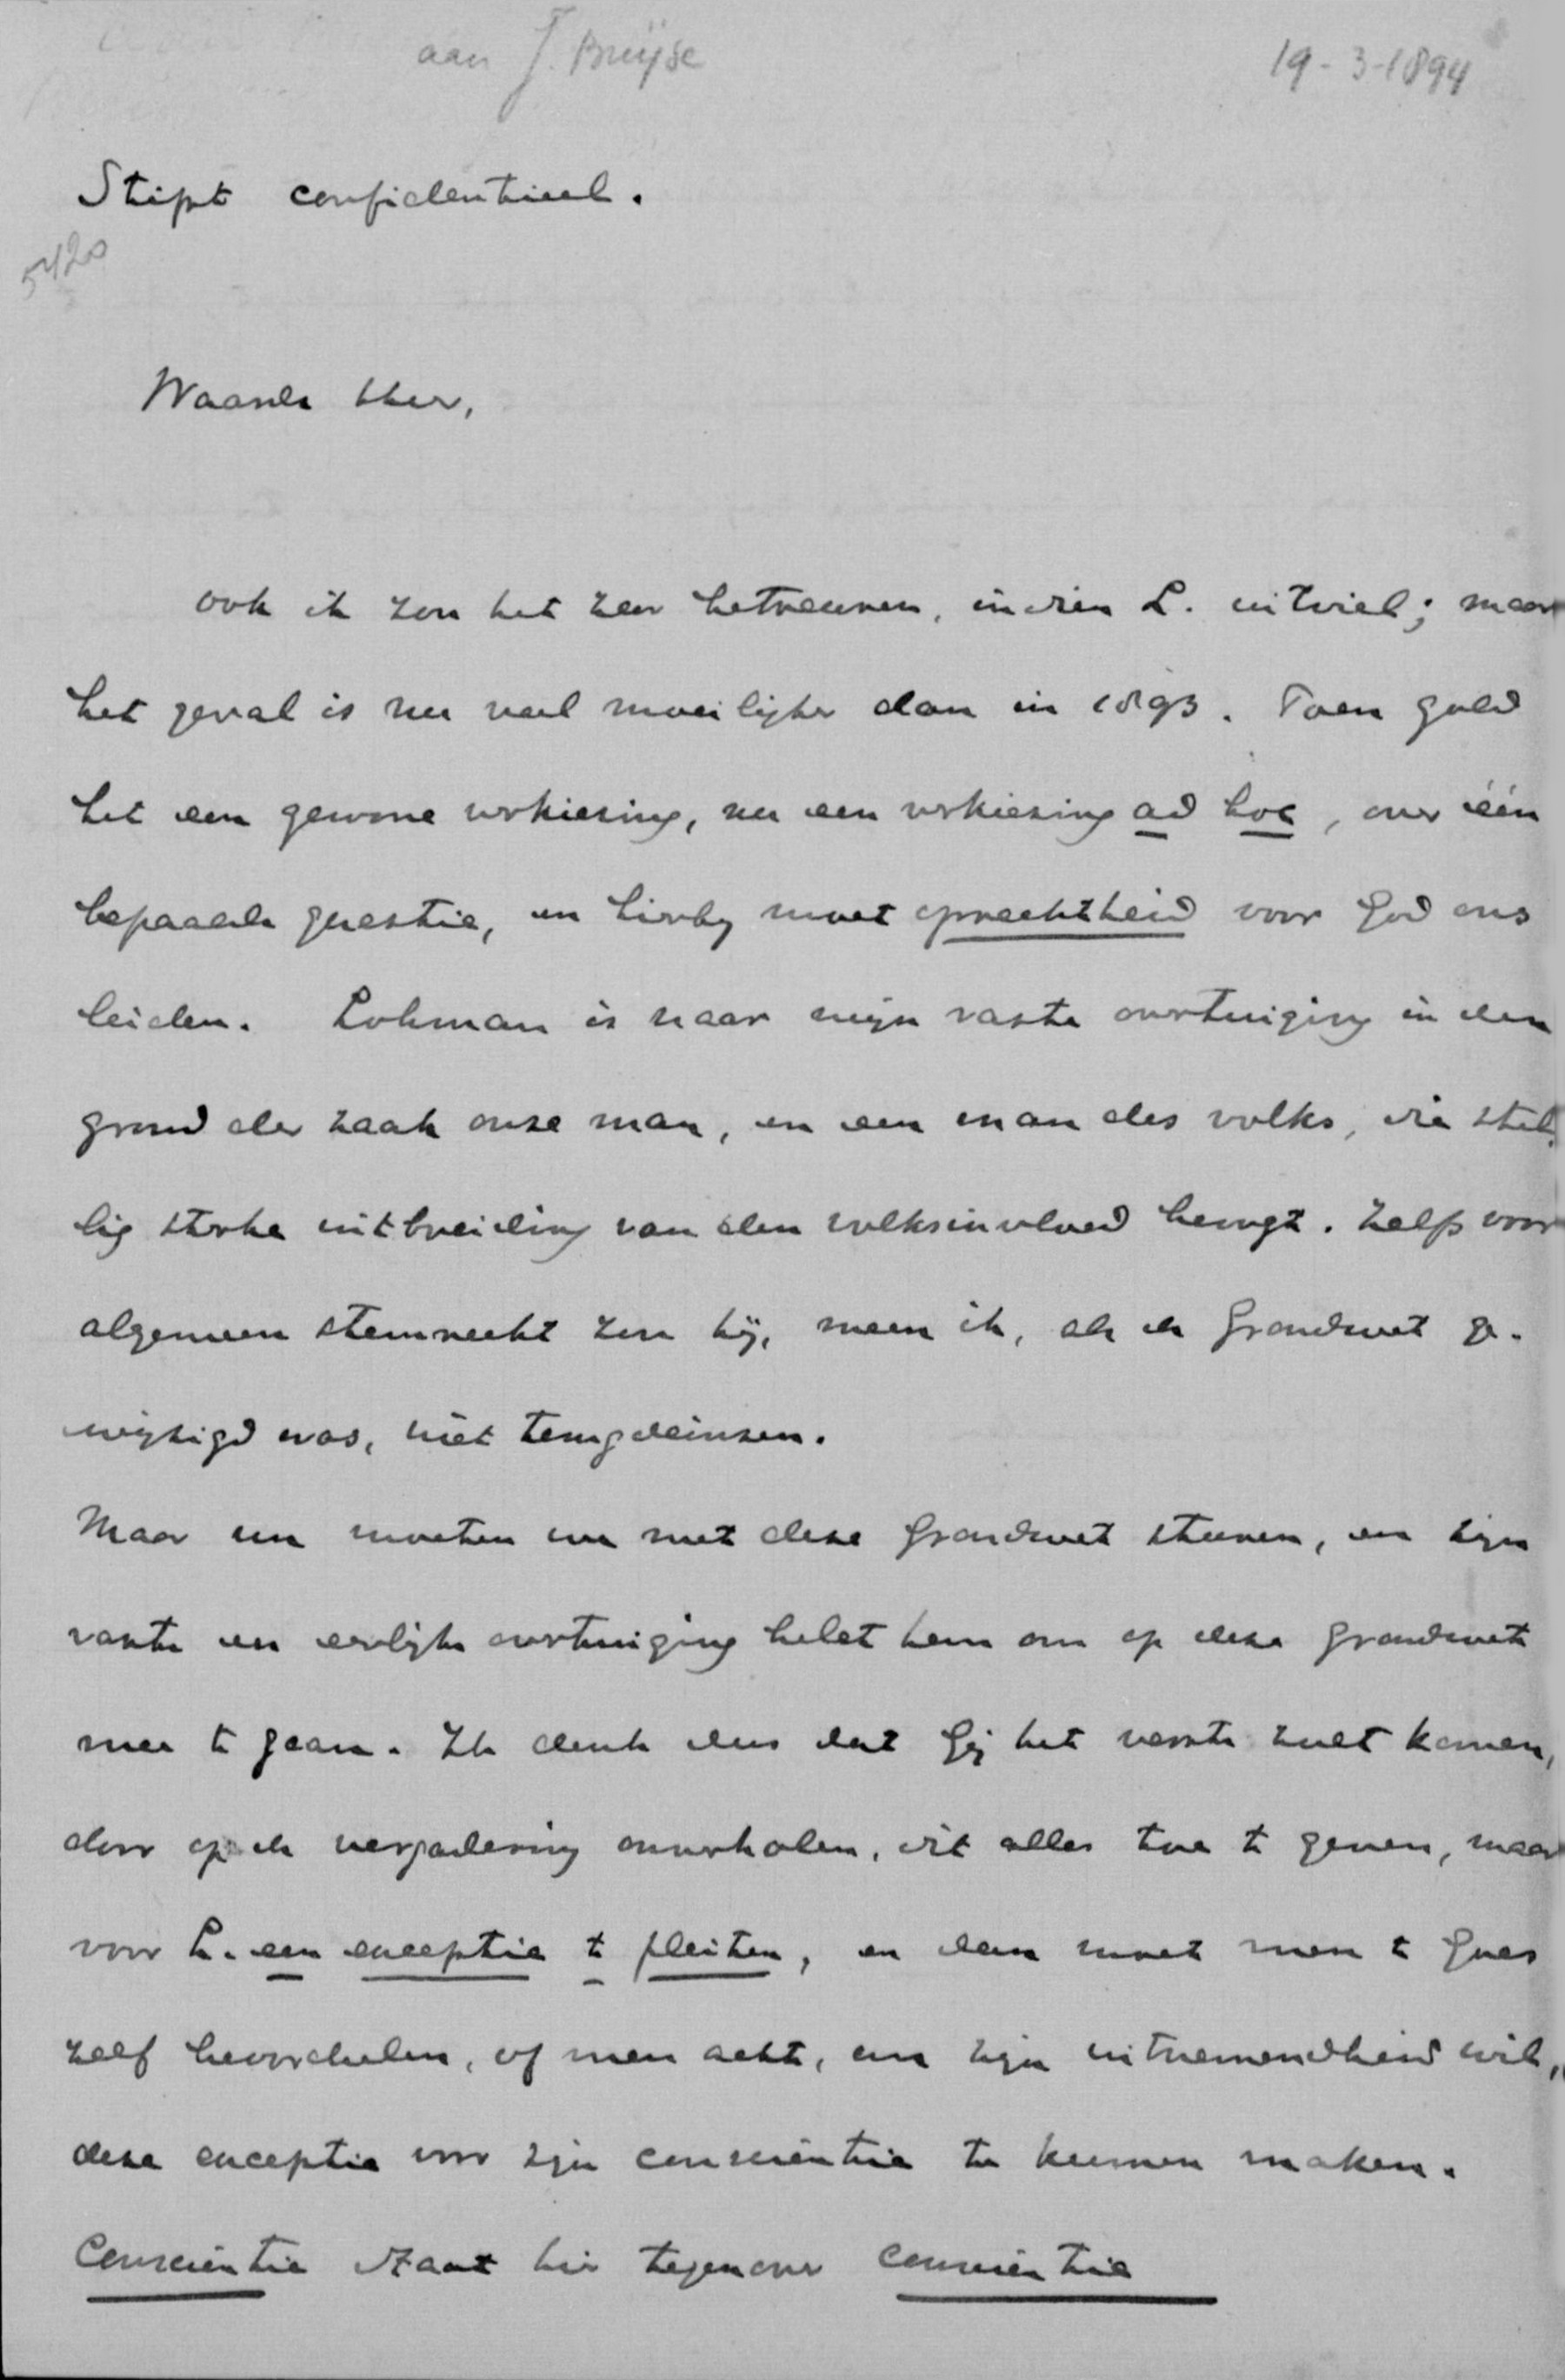 aan J. Bruijse
19-3-1894
Stipt confidentieel.
5420
Waarde Heer,
Ook ik zou het zeer betreuren, indien L. uitviel; maar
het geval is nu veel moeilijker dan in 1893. Toen gold
het een gewone verkiezing, nu een verkiezing ad hoc, over één
bepaalde quaestie, en hierbij moet oprechtheid voor God ons
leiden. Lohman is naar mijn vaste overtuiging in den
grond der zaak onze man, en een man des volks, die stel-
lig sterke uitbreiding van den volksinvloed beoogt. Zelfs voor
algemeen stemrecht zou hij, meen ik, als de Grondwet ge-
wijzigd was, niet terugdeinzen.
Maar we moeten nu met deze Grondwet sturen, en zijn
vaste en eerlijke overtuiging belet hem om op deze Grondwet
mee te gaan. Ik denk dus dat Gij het verste zult komen,
door op de vergadering onverholen, dit alles toe te geven, maar
voor L. een exceptie te pleiten, en dan moet men te Goes
zelf beoordeelen, of men acht, om zijn uitnemendheid wil,
deze exceptie voor zijn conscientie te kunnen maken.
Conscientie staat hier tegenover conscientie